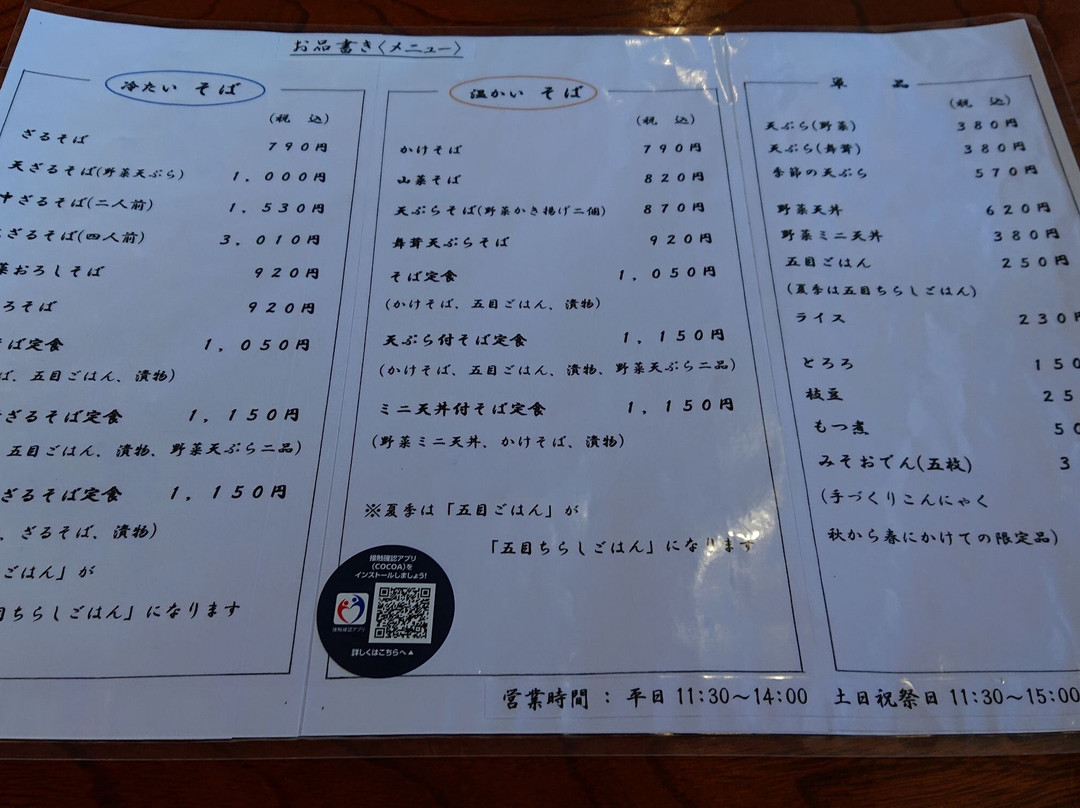 お品書き〈メニュー〉
冷たい そば
(税 込)
ざるそば 790円
天ざるそば(野菜天ぷら) 1,000円
ざるそば(二人前) 1,530円
ざるそば(四人前) 3,010円
菜おろしそば 920円
ろそば 920円
ば定食 1,050円
ば、五目ごはん、漬物)
ざるそば定食 1,150円
五目ごはん、漬物、野菜天ぷら二品)
ざるそば定食 1,150円
、ざるそば、漬物)
ごはん」が
目ちらしごはん」になります
温かい そば
(税 込)
かけそば 790円
山菜そば 820円
天ぷらそば(野菜かき揚げ二個) 870円
舞茸天ぷらそば 920円
そば定食 1,050円
(かけそば、五目ごはん、漬物)
天ぷら付そば定食 1,150円
(かけそば、五目ごはん、漬物、野菜天ぷら二品)
ミニ天丼付そば定食 1,150円
(野菜ミニ天丼、かけそば、漬物)
※夏季は「五目ごはん」が
「五目ちらしごはん」になります
接触確認アプリ
(COCOA)を
インストールしましょう!
接触確認アプリ
詳しくはこちらへ▲
単 品
(税 込)
天ぷら(野菜) 380円
天ぷら(舞茸) 380円
季節の天ぷら 570円
野菜天丼 620円
野菜ミニ天丼 380円
五目ごはん 250円
(夏季は五目ちらしごはん)
ライス 230円
とろろ 150
枝豆 25
もつ煮 50
みそおでん(五枚) 3
(手づくりこんにゃく
秋から春にかけての限定品)
営業時間 : 平日 11:30〜14:00 土日祝祭日 11:30〜15:00